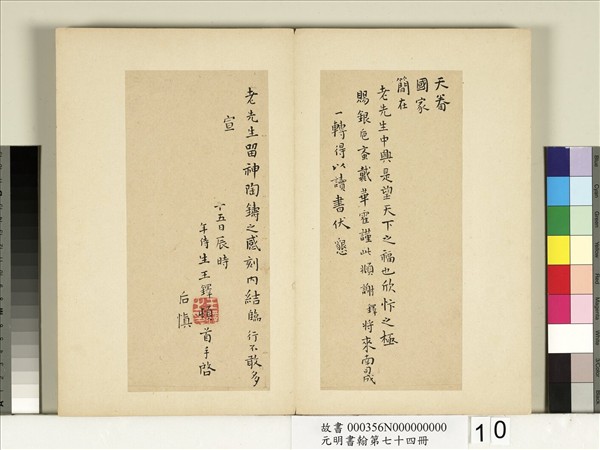 天眷
國家
簡在
老先生中興是望天下之福也欣忭之極
賜銀卮盥戴華寵謹此頓謝鐸將來南司成
一轉得以讀書伏懇
老先生留神陶鑄之感刻內結臨行不敢多
宣
十五日辰時
年侍生王鐸頓首手啓
后慎
故書 000356N000000000
元明書翰第七十四冊
10